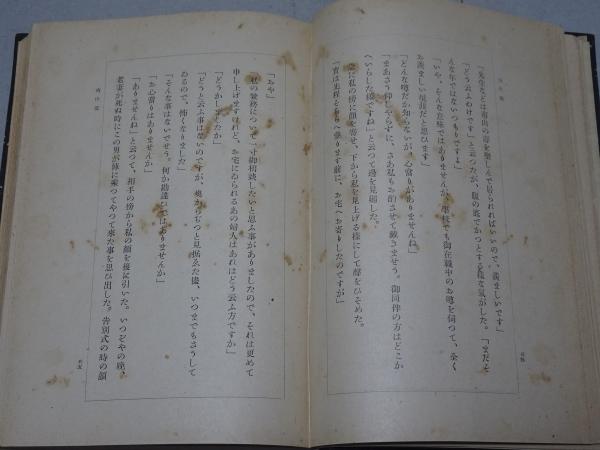 「先生などは南山の壽を樂しんで居られればいいので、羨ましいです」
「どう云ふわけです」と云つたが、腹の底でかつとする樣な氣がした。「まだそ
んな年ではないつもりですよ」
「いや、そんな意味ではありませんが、學校でも御在職中のお噂を伺つて、全く
お羨ましい境涯だと思ひます」
「どんな噂だか知らないが、心當りがありませんね」
「まあさう仰しやらずに、さあ私もお酌させて戴きませう。御同伴の方はどこか
へいらした樣ですね」と云つて邊を見廻した。
急に私の傍に顏を寄せ、下から私を見上げる樣にして聲をひそめた。
「實は先程こちらへ參ります前に、お宅へお寄りしたのですが」
「おや」
私の業務について一寸御相談したいと思ふ事がありましたので、それは更めて
申し上げますけれど、お宅にゐられるあの婦人はあれはどう云ふ方ですか」
「どうかしましたか」
「どうと云ふ事はないのですが、奧からぢつと見据ゑた儘、いつまでもさうして
ゐるので、怖くなりました」
「そんな事はないでせう。何か勘違ひではありませんか」
「お心當りはありませんか」
「ありませんね」と云つて、相手の傍から私の顏を後に引いた。いつぞやの晩、
老妻が死ぬ時にこの男が俥に乘つてやつて來た事を思ひ出した。告別式の時の顏